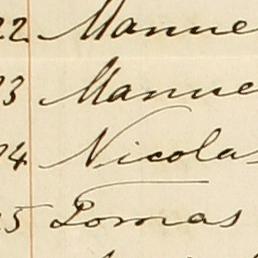 22 Manue
23 Manue
24 Nicolas
25 Tomas